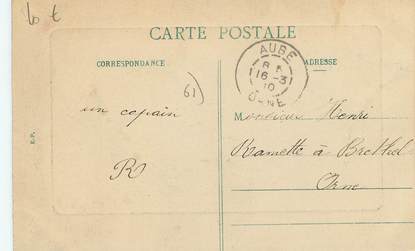 10 t
CARTE POSTALE
CORRESPONDANCE
ADRESSE
AUBE
16-3
10
ORNE
61
un copain
R
Monsieur Henri
Ramette à Brethel
Orne
E.P.